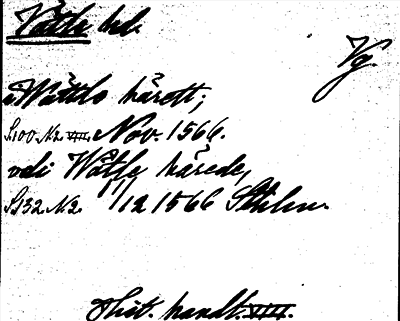 Vättle hd.
Vg.
i Wättlo härett,
S. 100. Nr. VIII. Nov. 1566.
vdi Wätle härede,
S. 132. Nr. 2. 11/12 1566
Hist. handl. VIII.